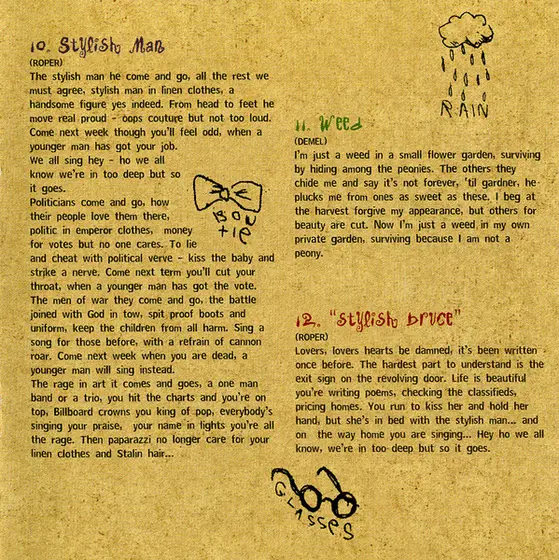 10. Stylish Man
(ROPER)
The stylish man he come and go, all the rest we
must agree, stylish man in linen clothes, a
handsome figure yes indeed. From head to feet he
move real proud - oops couture but not too loud.
Come next week though you'll feel odd, when a
younger man has got your job.
We all sing hey - ho we all
know we're in too deep but so
it goes.
Politicians come and go, how
their people love them there,
politic in emperor clothes, money
for votes but no one cares. To lie
and cheat with political verve - kiss the baby and
strike a nerve. Come next term you'll cut your
throat, when a younger man has got the vote.
The men of war they come and go, the battle
joined with God in tow, spit proof boots and
uniform, keep the children from all harm. Sing a
song for those before, with a refrain of cannon
roar. Come next week when you are dead, a
younger man will sing instead.
The rage in art it comes and goes, a one man
band or a trio, you hit the charts and you're on
top, Billboard crowns you king of pop, everybody's
singing your praise, your name in lights you're all
the rage. Then paparazzi no longer care for your
linen clothes and Stalin hair...
BOW
tie
RAIN
11. Weed
(DEMEL)
I'm just a weed in a small flower garden, surviving
by hiding among the peonies. The others they
chide me and say it's not forever, 'til gardner, he
plucks me from ones as sweet as these. I beg at
the harvest forgive my appearance, but others for
beauty are cut. Now I'm just a weed in my own
private garden, surviving because I am not a
peony.
12. "Stylish Druce"
(ROPER)
Lovers, lovers hearts be damned, it's been written
once before. The hardest part to understand is the
exit sign on the revolving door. Life is beautiful
you're writing poems, checking the classifieds,
pricing homes. You run to kiss her and hold her
hand, but she's in bed with the stylish man... and
on the way home you are singing... Hey ho we all
know, we're in too deep but so it goes.
GLASSES